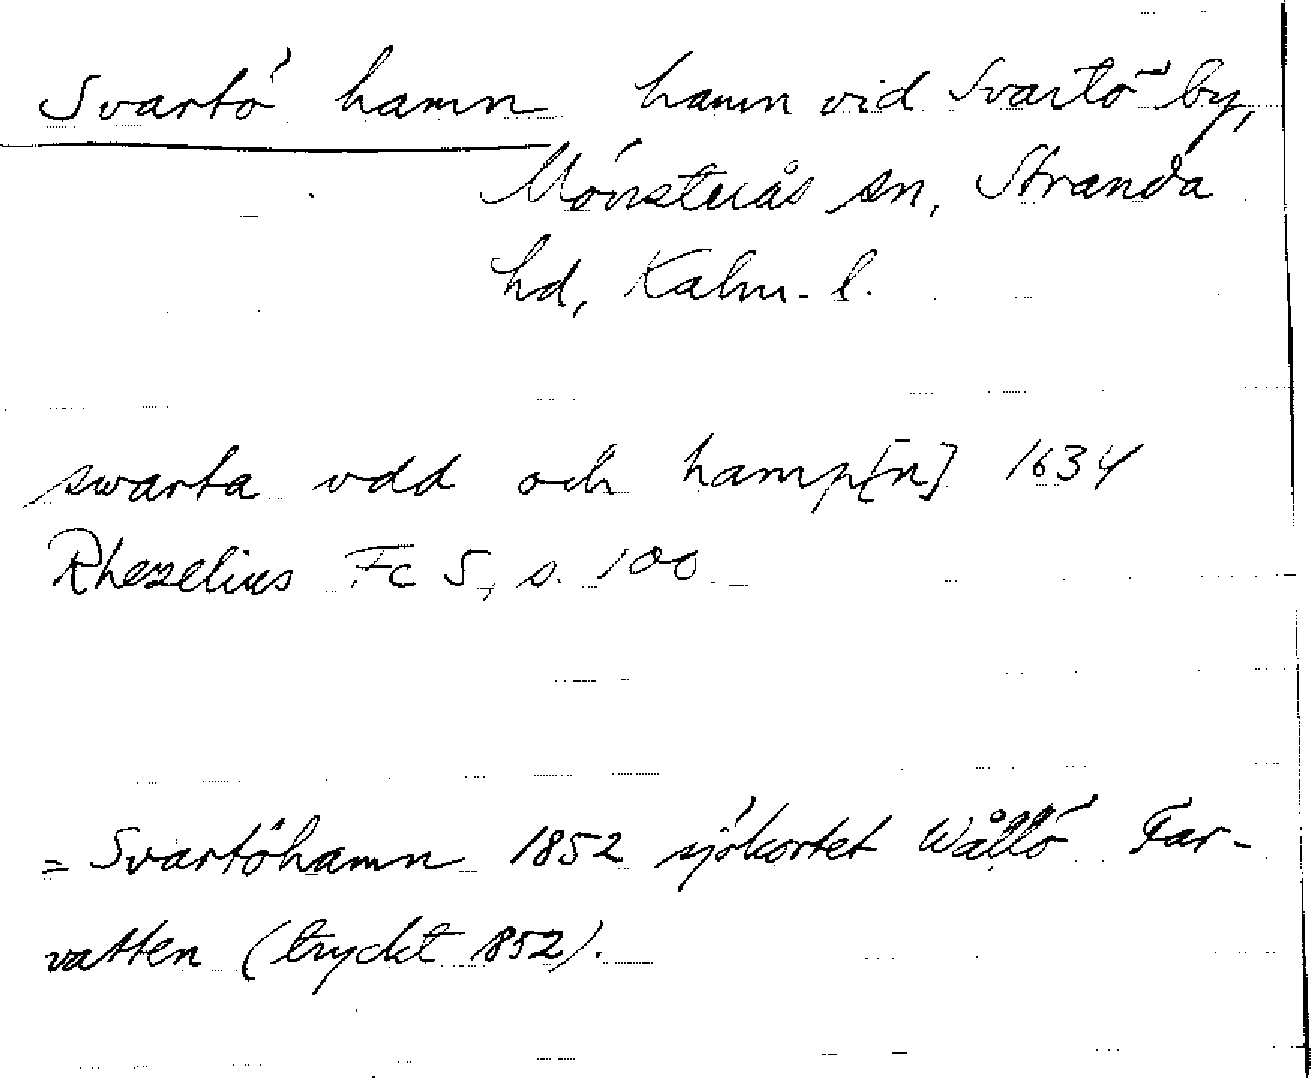 Svartö hamn hamn vid Svartö by,
Mönsterås sn, Stranda
hd, Kalm. l.
swarta vdd och hamp[n] 1634
Rhezelius Fc 5, s. 100
= Svartöhamn 1852 sjökortet Wållö Far-
vatten (tryckt 1852).